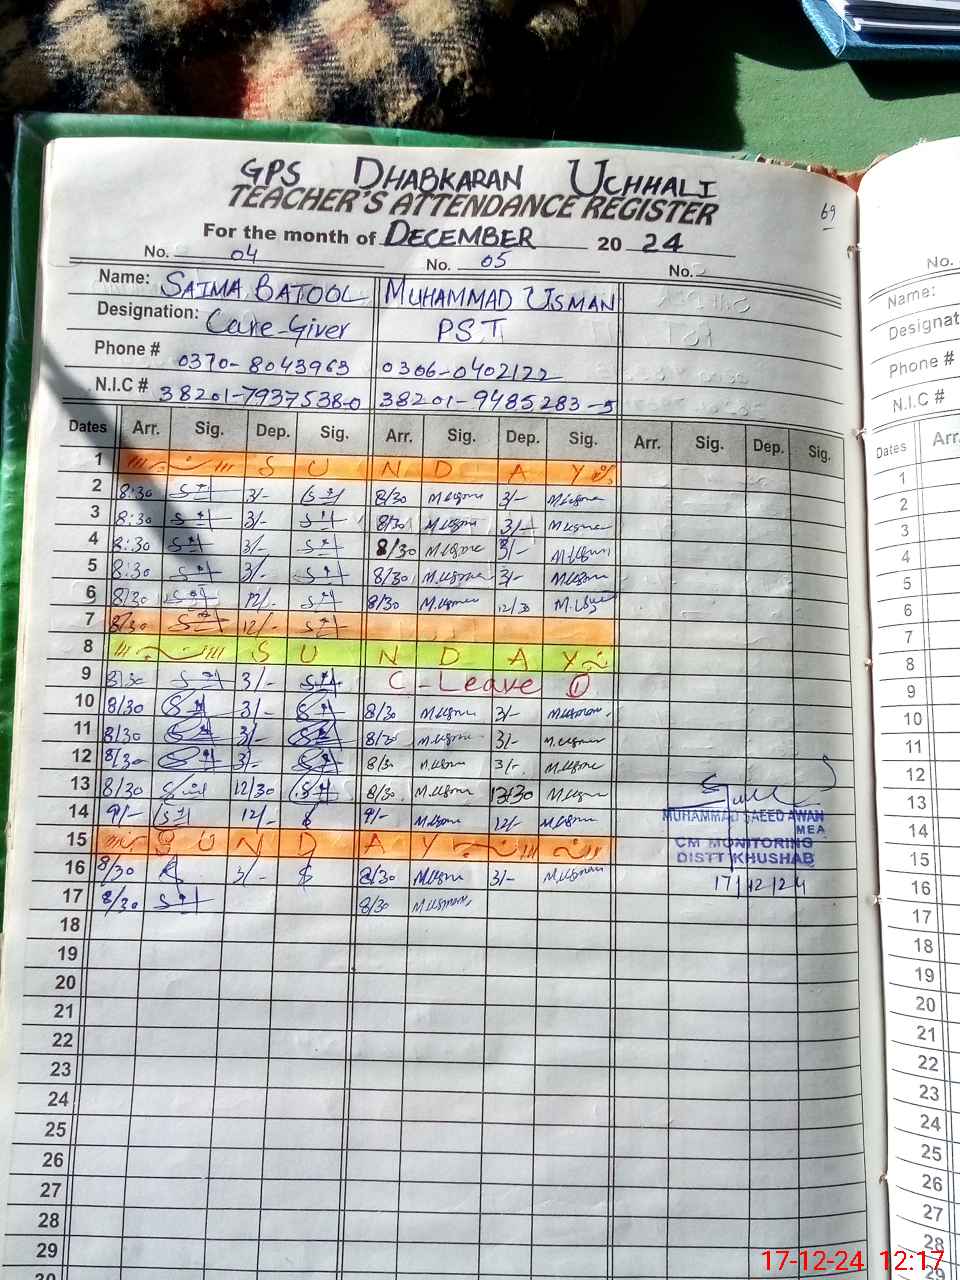 GPS DHABKARAN UCHHALI
TEACHER'S ATTENDANCE REGISTER
69
For the month of DECEMBER 20 24
No. 04 No. 05 No.
Name: SAIMA BATOOL MUHAMMAD USMAN
Designation: Care-Giver PST
Phone # 0370-8043963 0306-0402122
N.I.C # 38201-7937538-0 38201-9485283-5
Dates Arr. Sig. Dep. Sig. Arr. Sig. Dep. Sig. Arr. Sig. Dep. Sig.
1 SUNDAY
2 8:30 3/- 8/30 M.Usman 3/- M.Usman
3 8:30 3/- 8/30 M.Usman 3/- M.Usman
4 8:30 3/- 8/30 M.Usman 3/- M.Usman
5 8:30 3/- 8/30 M.Usman 3/- M.Usman
6 8/30 12/- 8/30 M.Usman 12/30 M.Usman
7 8/30 12/-
8 SUNDAY
9 8/30 3/- C-Leave 1
10 8/30 3/- 8/30 M.Usman 3/- M.Usman
11 8/30 3/- 8/30 M.Usman 3/- M.Usman
12 8/30 3/- 8/30 M.Usman 3/- M.Usman
13 8/30 12/30 8/30 M.Usman 12/30 M.Usman
14 9/- 12/- 9/- M.Usman 12/- M.Usman
15 SUNDAY
16 8/30 3/- 8/30 M.Usman 3/- M.Usman
17 8/30 8/30 M.Usman
18
19
20
21
22
23
24
25
26
27
28
29
30
MUHAMMAD SAEED AWAN
MEA
CM MONITORING
DISTT KHUSHAB
17/12/24
No.
Name:
Designat
Phone #
N.I.C #
Dates Arr.
1
2
3
4
5
6
7
8
9
10
11
12
13
14
15
16
17
18
19
20
21
22
23
24
25
26
27
28
29
17-12-24 12:17